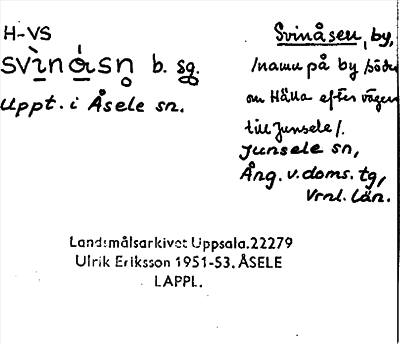 H-VS
svìnåsn̥ b. sg.
Uppt. i Åsele sn.
Svinåsen, by,
/namn på by söder
om Hälla efter vägen
till Junsele/.
Junsele sn,
Ång. v. doms. tg,
Vrnl. län.
Landsmålsarkivet Uppsala.22279
Ulrik Eriksson 1951-53. ÅSELE
LAPPL.